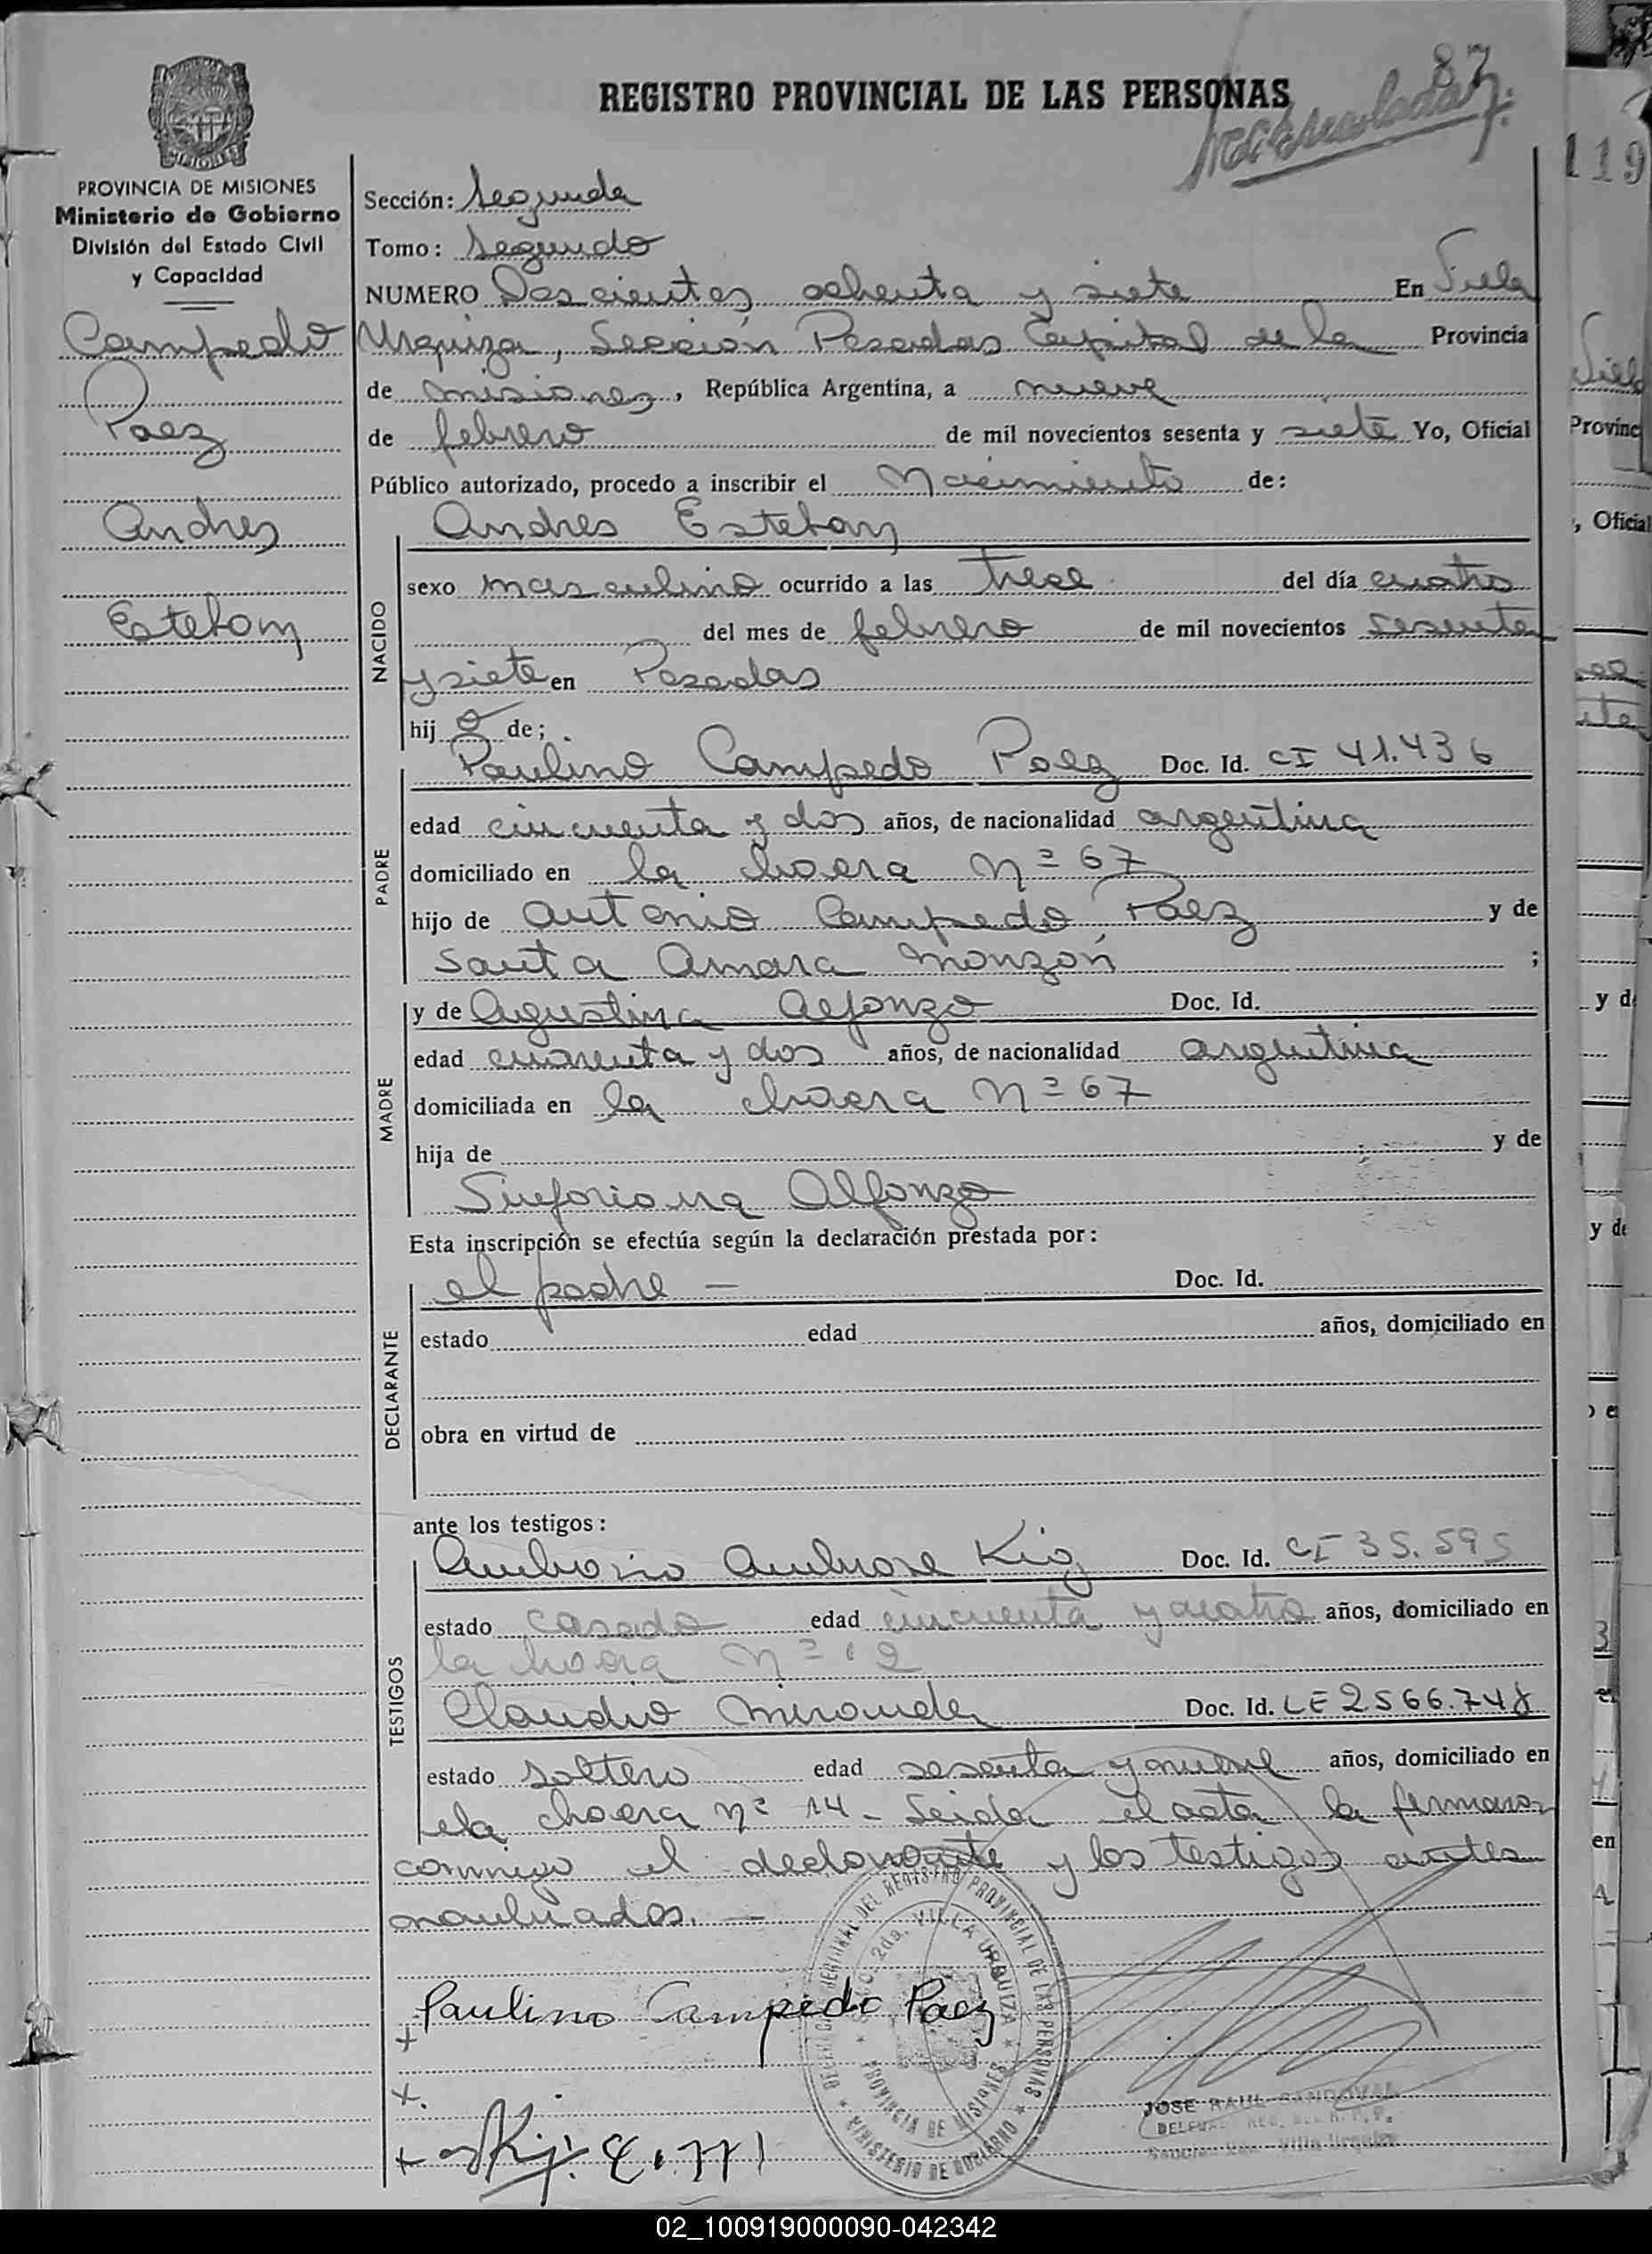 87
REGISTRO PROVINCIAL DE LAS PERSONAS
119
PROVINCIA DE MISIONES
Ministerio de Gobierno
División del Estado Civil
y Capacidad
Campedo
Paez
Andres
Esteban
Sección: Segunda
Tomo: Segundo
NUMERO Doscientos ochenta y siete En Villa
Urquiza, Sección Posadas Capital de la Provincia
de misiones, República Argentina, a nueve
de febrero de mil novecientos sesenta y siete Yo, Oficial
Público autorizado, procedo a inscribir el Nacimiento de:
Andres Esteban
NACIDO
sexo masculino ocurrido a las trece del día cuatro
del mes de febrero de mil novecientos sesenta
y siete en Posadas
hijo de;
PADRE
Paulino Campedo Paez Doc. Id. CI 41.436
edad cincuenta y dos años, de nacionalidad argentina
domiciliado en la chacra Nº 67
hijo de Antonio Campedo Paez y de
Santa Amara Monzón ;
MADRE
y de Agustina Alfonzo Doc. Id.
edad cuarenta y dos años, de nacionalidad argentina
domiciliada en la chacra Nº 67
hija de y de
Sinforiana Alfonzo
Esta inscripción se efectúa según la declaración prestada por:
DECLARANTE
el padre — Doc. Id.
estado edad años, domiciliado en
obra en virtud de
ante los testigos:
TESTIGOS
Ambrosio Ambrose Kig Doc. Id. CI 35.595
estado casado edad cincuenta y cuatro años, domiciliado en
la chacra Nº 12
Claudio Miranda Doc. Id. LE 2566.748
estado soltero edad sesenta y nueve años, domiciliado en
la chacra Nº 14 - Leida el acta la firmaron
conmigo el declarante y los testigos antes
nombrados. —
Paulino Campedo Paez
REGISTRO PROVINCIAL DE LAS PERSONAS
MINISTERIO DE GOBIERNO
2da. VILLA URQUIZA
PROVINCIA DE MISIONES
JOSE RAUL SANDOVAL
02_100919000090-042342